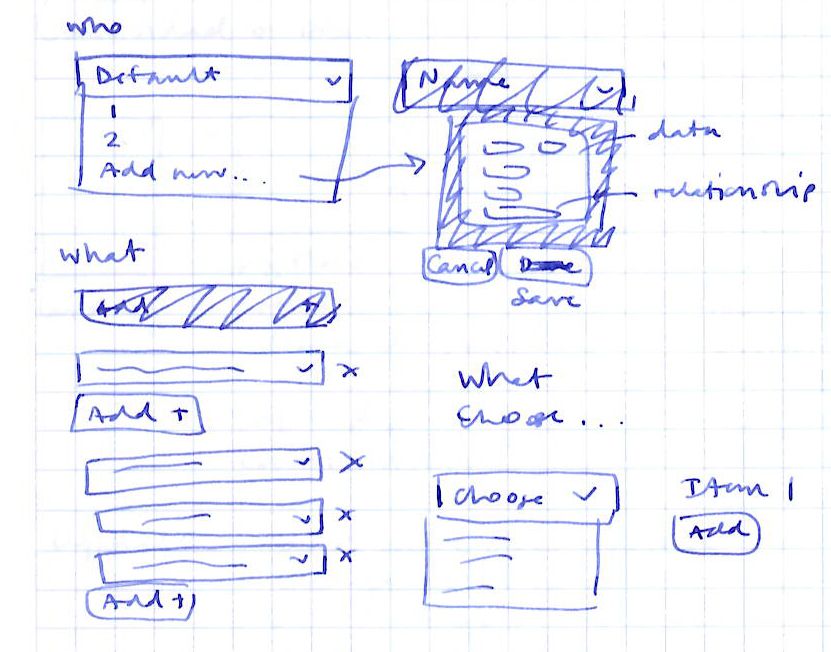 who
Default
1
2
Add new...
Name
data
relationship
Cancel
Done
Save
what
Add +
Add +
Add +
What
Choose...
Choose
Item 1
Add